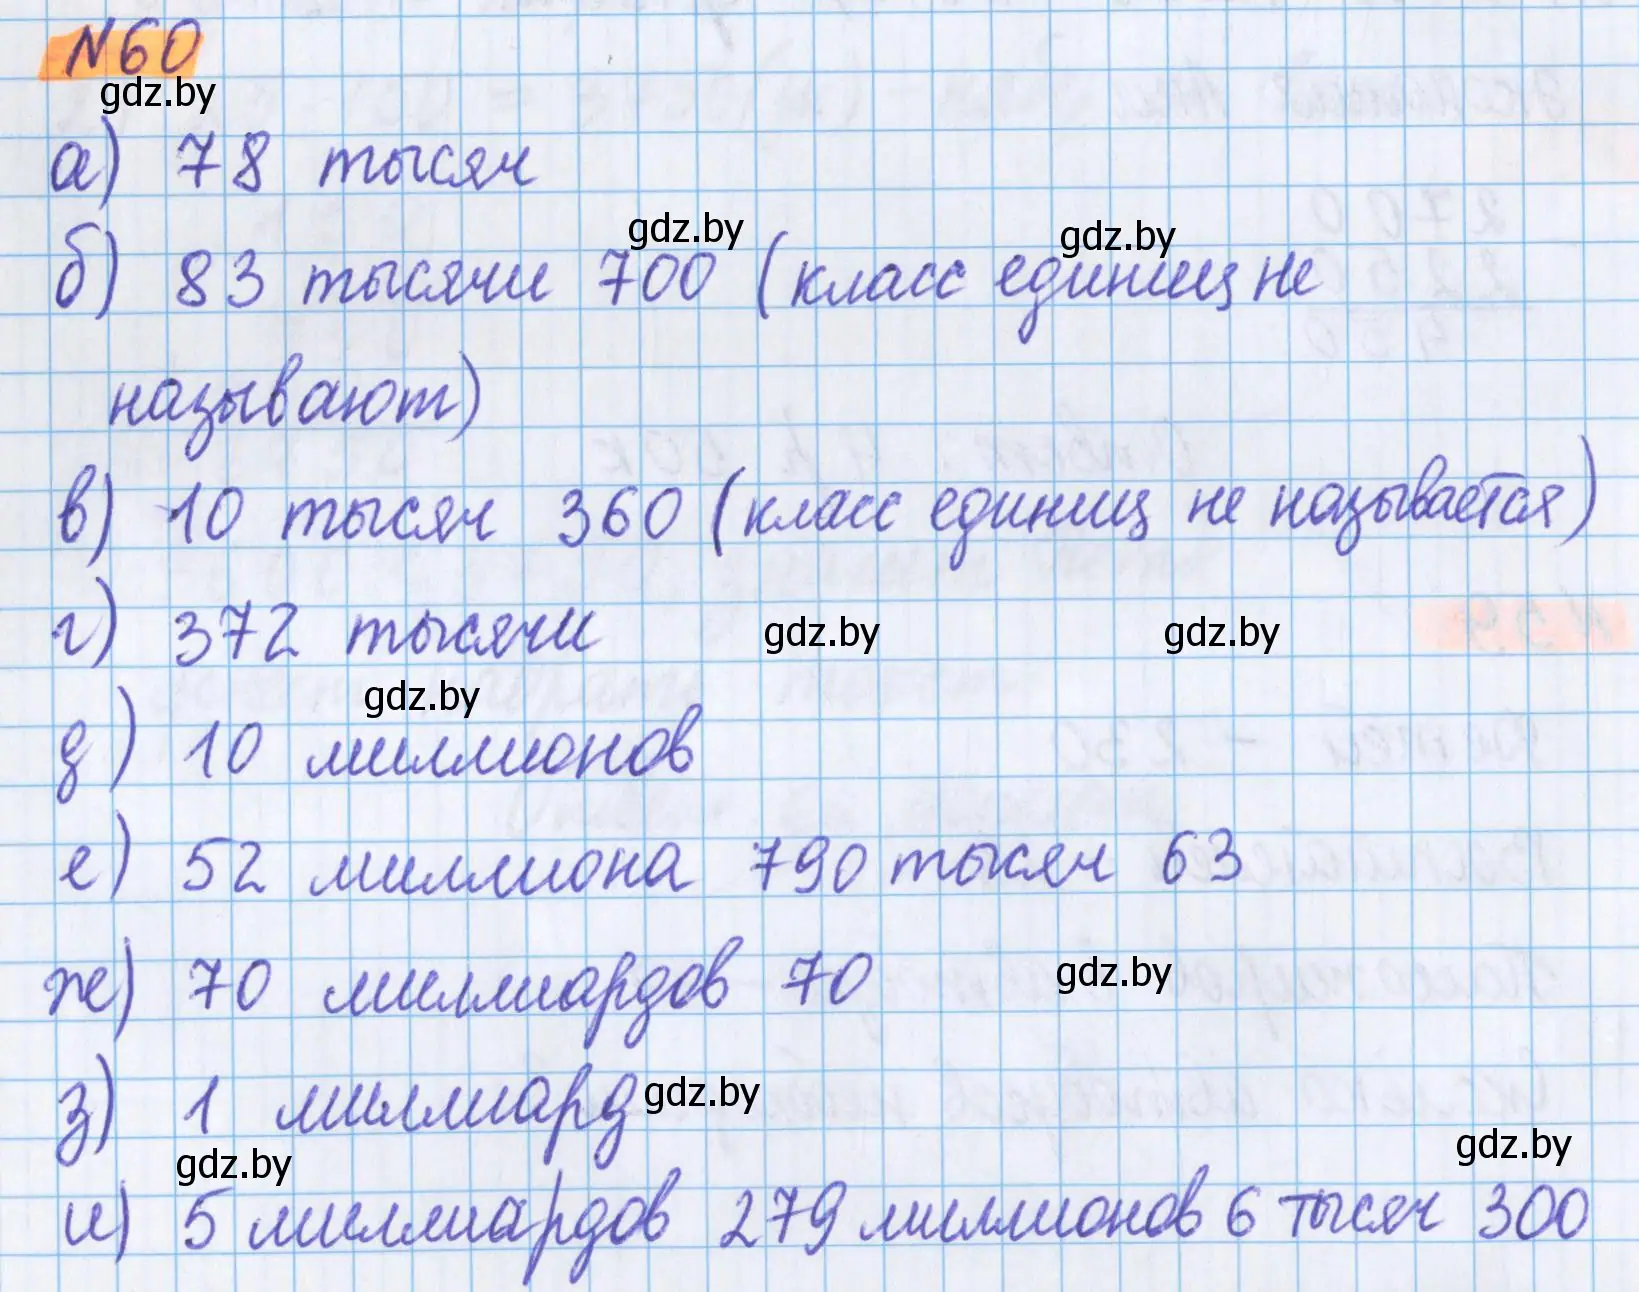 №60
gdz.by
а) 78 тысяч
gdz.by gdz.by
б) 83 тысячи 700 (класс единиц не
называют)
в) 10 тысяч 360 (класс единиц не называется)
г) 372 тысячи gdz.by gdz.by
gdz.by
д) 10 миллионов
е) 52 миллиона 790 тысяч 63
ж) 70 миллиардов 70 gdz.by
з) 1 миллиард gdz.by
gdz.by gdz.by
и) 5 миллиардов 279 миллионов 6 тысяч 300